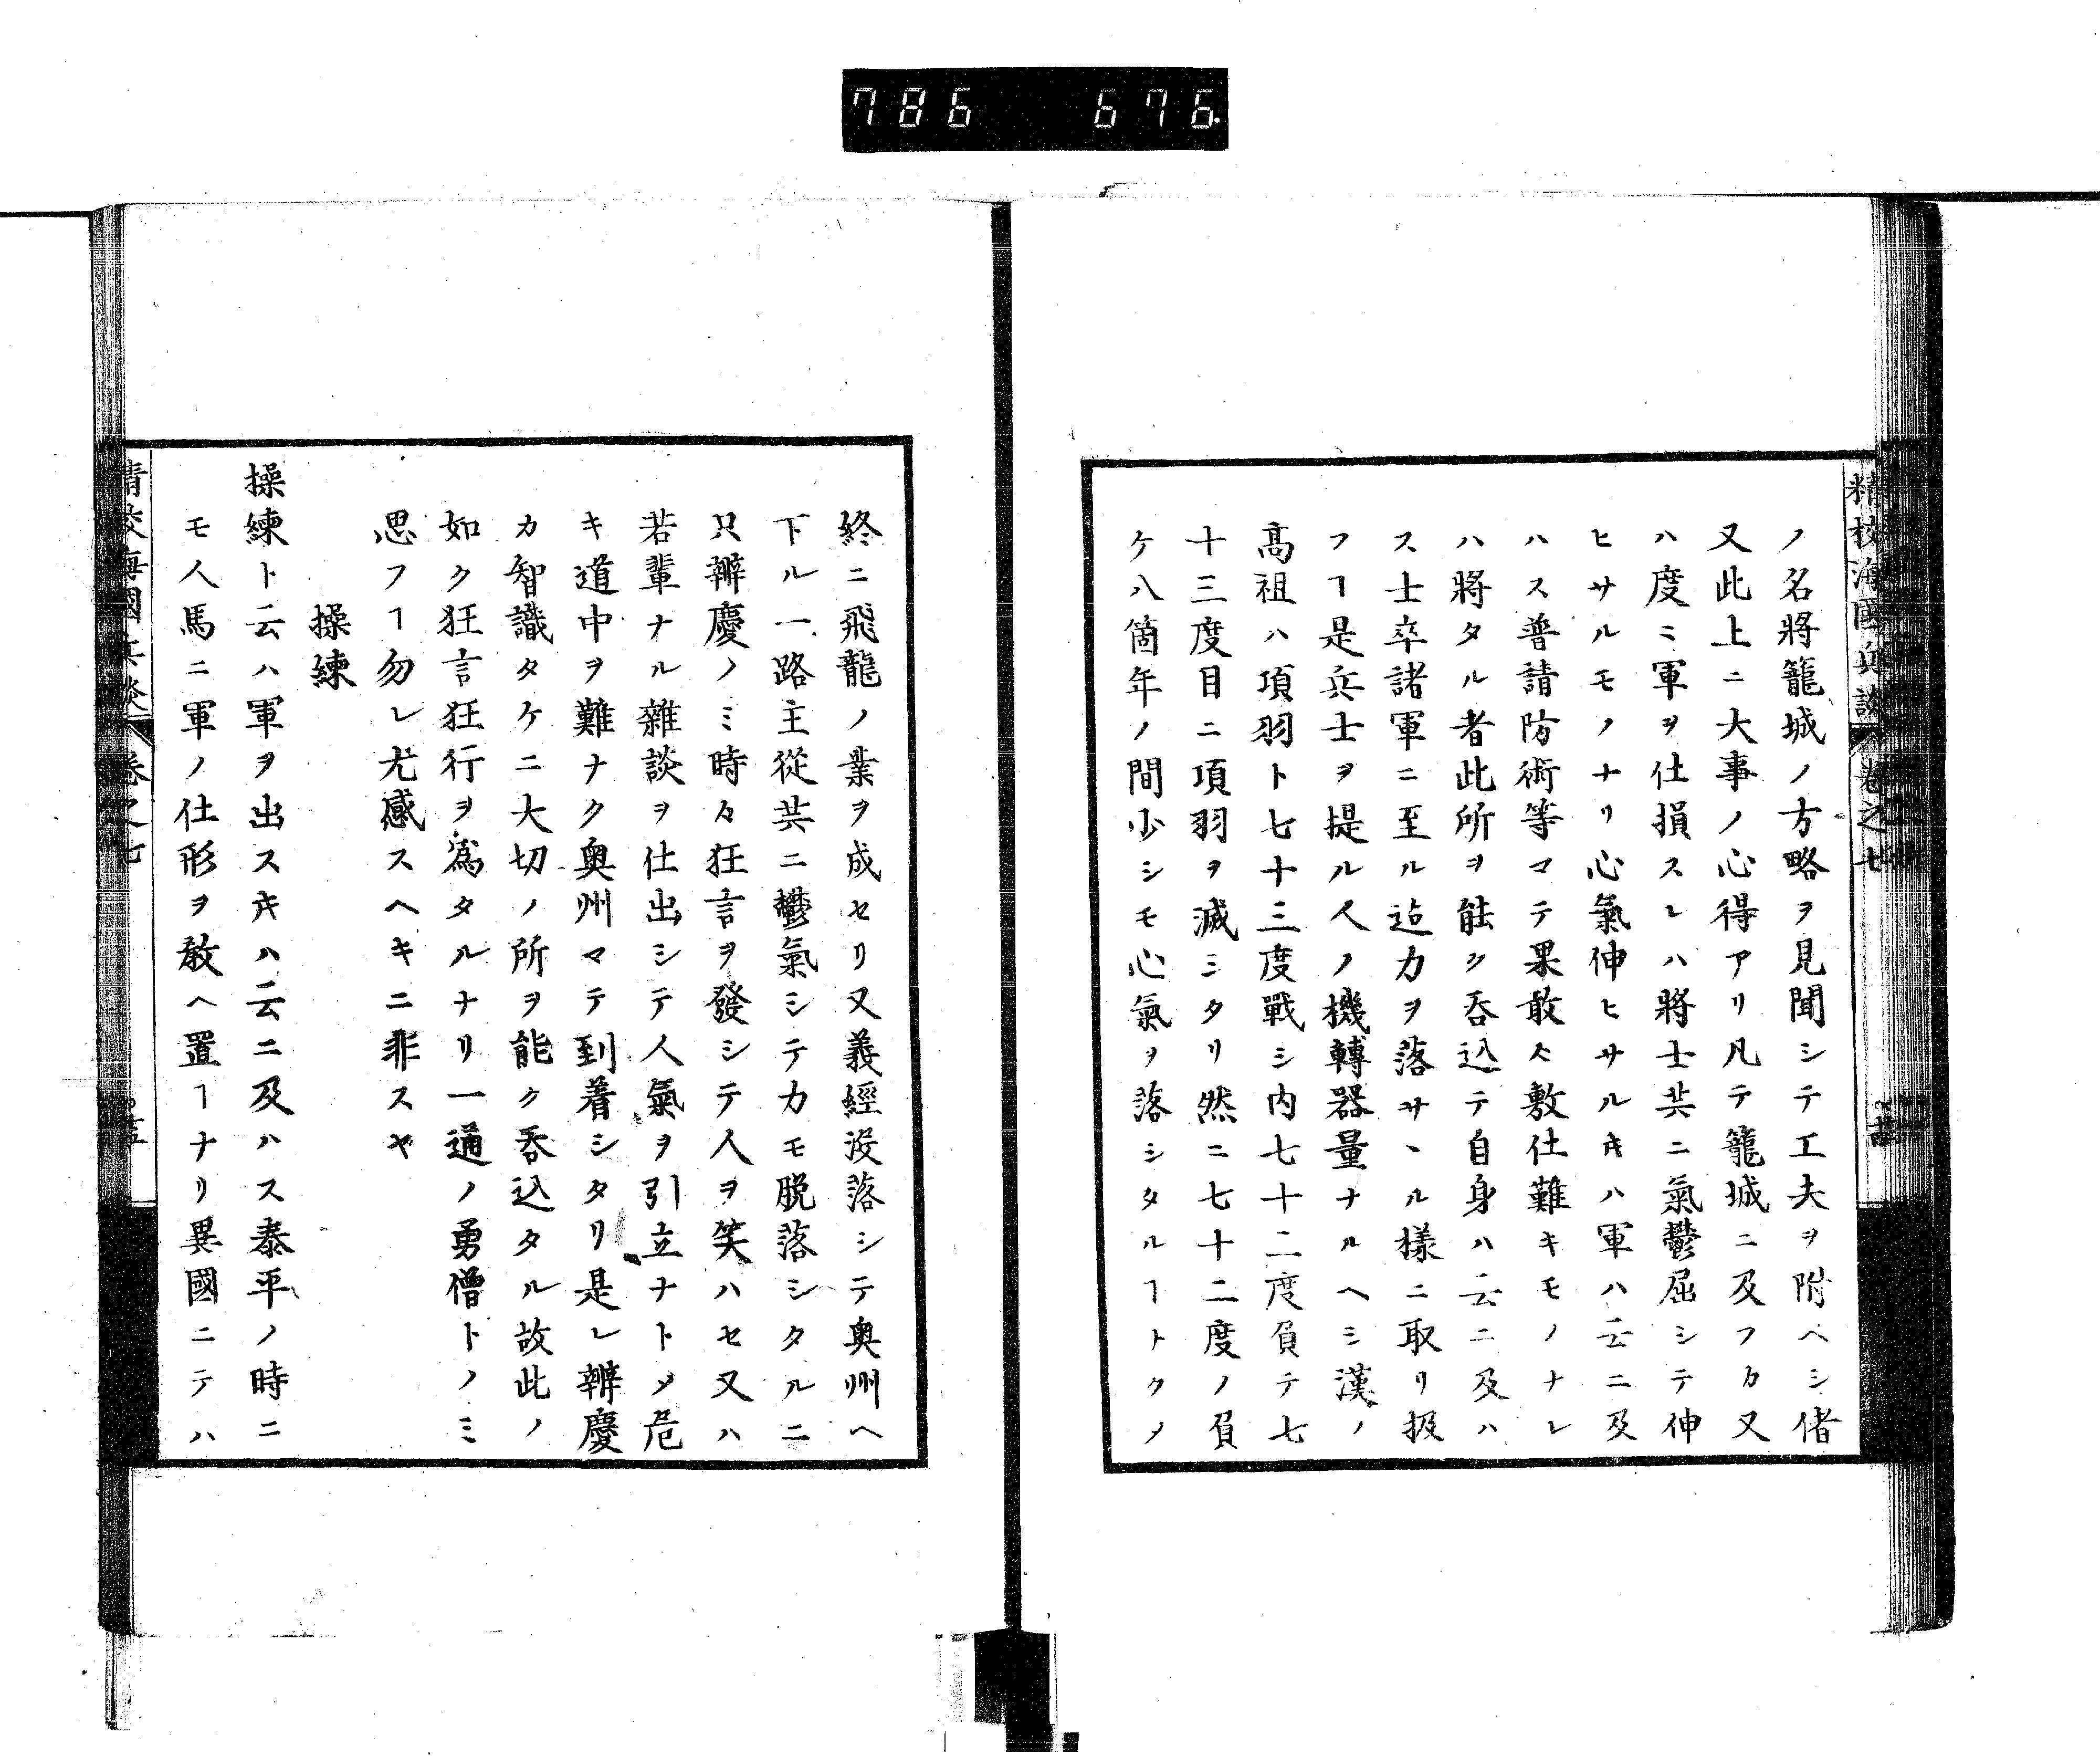 786 676
精校海國兵談 卷之七
ノ名將籠城ノ方略ヲ見聞シテ工夫ヲ附ヘシ偖
又此上ニ大事ノ心得アリ凡テ籠城ニ及フカ又
ハ度〻軍ヲ仕損スレハ將士共ニ氣鬱屈シテ伸
ヒサルモノナリ心氣伸ヒサルキハ軍ハ云ニ及
ハス普請防術等マテ果敢〻敷仕難キモノナレ
ハ將タル者此所ヲ能ク呑込テ自身ハ云ニ及ハ
ス士卒諸軍ニ至ル迠力ヲ落サヽル樣ニ取リ扱
フヿ是兵士ヲ提ル人ノ機轉器量ナルヘシ漢ノ
高祖ハ項羽ト七十三度戰シ内七十二度負テ七
十三度目ニ項羽ヲ滅シタリ然ニ七十二度ノ負
ケ八箇年ノ間少シモ心氣ヲ落シタルヿトクメ
終ニ飛龍ノ業ヲ成セリ又義經没落シテ奥州ヘ
下ル一路主從共ニ鬱氣シテカモ脱落シタルニ
只辨慶ノミ時々狂言ヲ發シテ人ヲ笑ハセ又ハ
若輩ナル雜談ヲ仕出シテ人氣ヲ引立ナトメ危
キ道中ヲ難ナク奥州マテ到着シタリ是レ辨慶
カ智識タケニ大切ノ所ヲ能ク呑込タル故此ノ
如ク狂言狂行ヲ爲タルナリ一通ノ勇僧トノミ
思フヿ勿レ尤感スヘキニ非スヤ
操練
操練ト云ハ軍ヲ出スキハ云ニ及ハス泰平ノ時ニ
モ人馬ニ軍ノ仕形ヲ教ヘ置ヿナリ異國ニテハ
精校海國兵談 卷之七